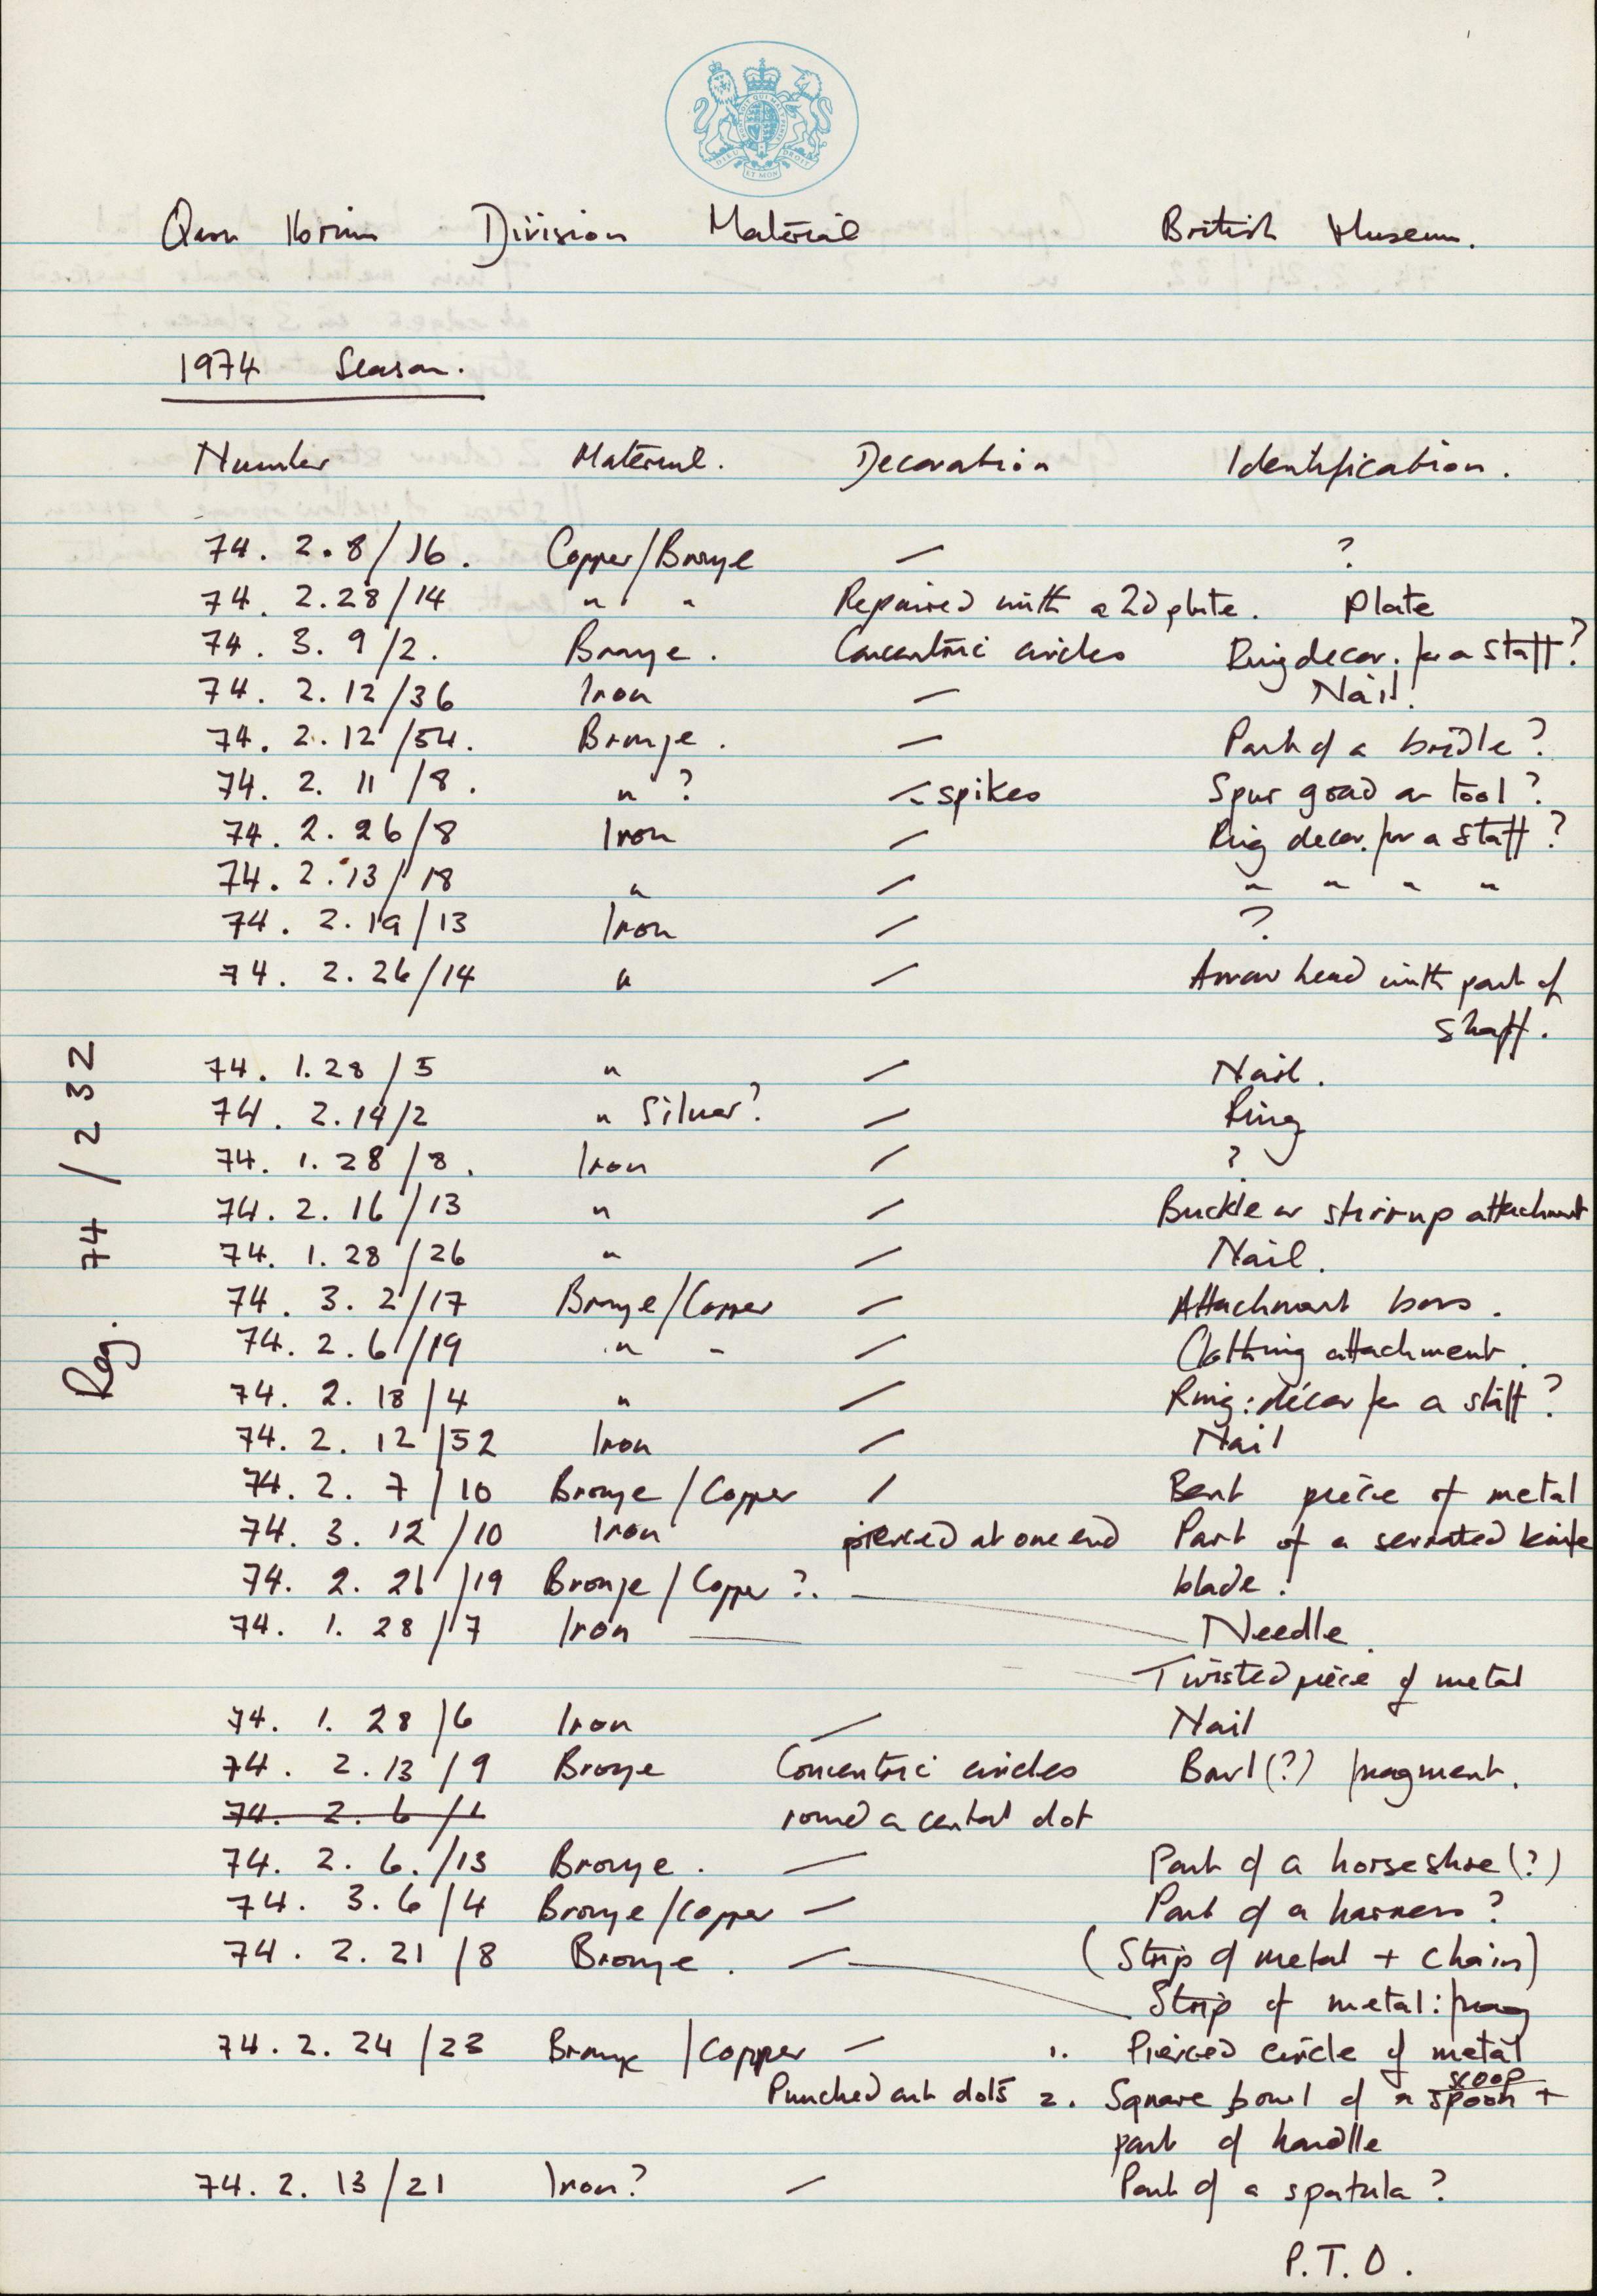 DIEU ET MON DROIT
Qasr Ibrim Division Material British Museum.
1974 Season.
Number Material. Decoration Identification.
74. 2. 8/16. Copper/Bronze — ?
74. 2. 28/14 " " Repaired with a 2d plate. Plate
74. 3. 9/2. Bronze. Concentric circles Ring decor. for a staff?
74. 2. 12/36 Iron — Nail.
74. 2. 12/54. Bronze. — Part of a bridle?
74. 2. 11/8. " ? — spikes Spur goad or tool?
74. 2. 26/8 Iron — Ring decor. for a staff?
74. 2. 13/18 " — " " " "
74. 2. 19/13 Iron — ?
74. 2. 26/14 " — Arrow head with part of
shaft.
74. 1. 28/5 " — Nail.
74. 2. 14/2 " Silver? — Ring
74. 1. 28/8. Iron — ?
74. 2. 16/13 " — Buckle or stirrup attachment
74. 1. 28/26 " — Nail.
74. 3. 2/17 Bronze/Copper — Attachment boss.
74. 2. 6/19 " " — Clothing attachment.
74. 2. 18/4 " — Ring: décor for a staff?
74. 2. 12/52 Iron — Nail
74. 2. 7/10 Bronze/Copper / Bent piece of metal
74. 3. 12/10 Iron pierced at one end Part of a serrated knife
74. 2. 26/19 Bronze/Copper?. — blade.
74. 1. 28/7 Iron — Needle.
Twisted piece of metal
74. 1. 28/6 Iron — Nail
74. 2. 13/9 Bronze Concentric circles Bowl (?) fragment.
74. 2. 6/1 round a central dot
74. 2. 6./13 Bronze. — Part of a horseshoe (?)
74. 3. 6/4 Bronze/Copper — Part of a harness?
74. 2. 21/8 Bronze. — (Strip of metal + chain)
Strip of metal: frag
74. 2. 24/23 Bronze/Copper — 1. Pierced circle of metal
scoop
Punched out dots 2. Square bowl of a spoon +
part of handle
74. 2. 13/21 Iron? — Part of a spatula?
P.T.O.
Reg. 74/232